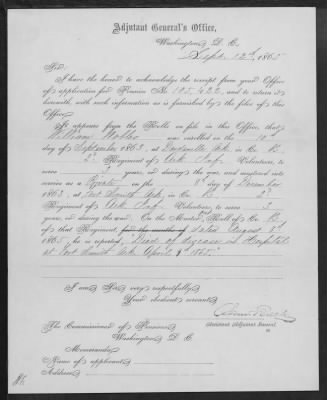 Adjutant General's Office,
Washington, D. C.
Sept. 12th, 1865
Sir:
I have the honor to acknowledge the receipt from your Office
of application for Pension No. 105,422, and to return it
herewith, with such information as is furnished by the files of this
Office.
It appears from the Rolls on file in this Office, that
William was enrolled on the
day of September 1863, at Ark. in Co. B,
2d Regiment of Ark Inf. Volunteers, to
serve 3 years, or during the war, and mustered into
service as a Private on the 8th day of December
1863, at Fort Smith Ark, in Co. B, 2d
Regiment of Ark Inf. Volunteers, to serve 3
years, or during the war. On the Muster Roll of Co. B,
of that Regiment, for the months of dated August 8th
1865, he is reported, "Died of disease in Hospital
at Fort Smith Ark April 9th 1865."
I am, Sir, very respectfully,
Your obedient servant,
Assistant Adjutant General.
The Commissioner of Pensions,
Washington, D. C.
Memoranda:
Name of applicant
Address